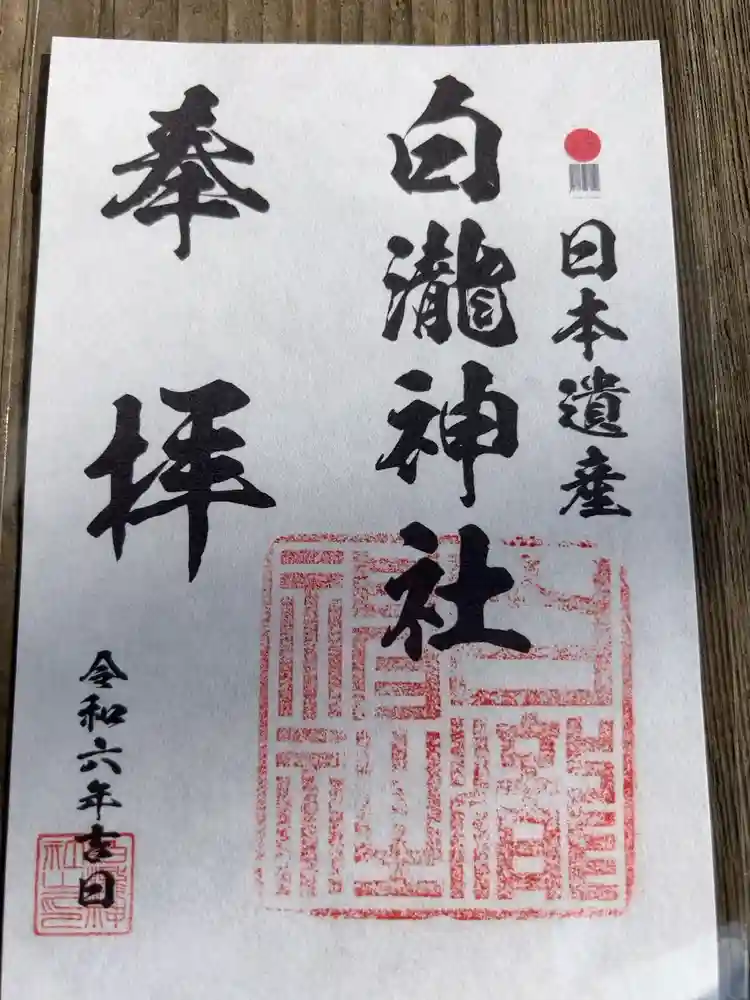 日本遺産
白瀧神社
奉拝
令和六年吉日
白瀧神社